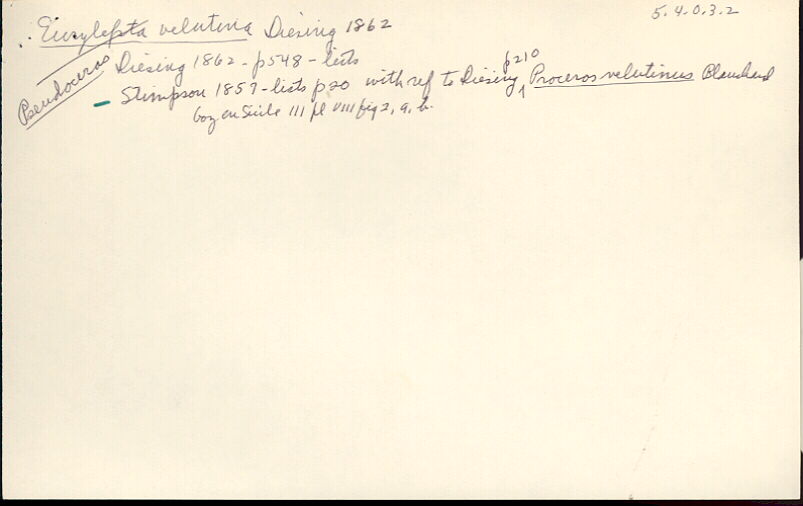 ∴ Eurylepta velutina Diesing 1862
5.4.0.3.2
Pseudoceros
Diesing 1862 - p548 - lists
— Stimpson 1857 - lists p20 with ref to Diesing ^ p210 Proceros velutinus Blanchard
Voy en Sicile III pl VIII fig 2, a, b.